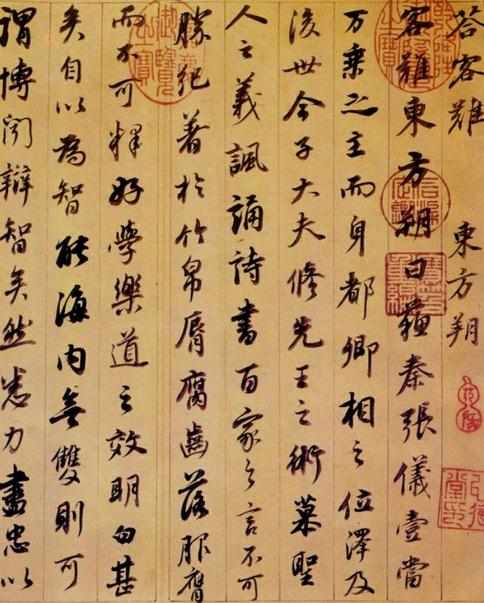 荅客難 東方朔
客難東方朔曰蘇秦張儀壹當
万乘之主而身都卿相之位澤及
後世今子大夫修先王之術慕聖
人之義諷誦詩書百家之言不可
勝紀著於竹帛脣腐齒落服膺
而不可釋好學樂道之效明白甚
矣自以為智能海内無雙則可
謂博聞辯智矣然悉力盡忠以